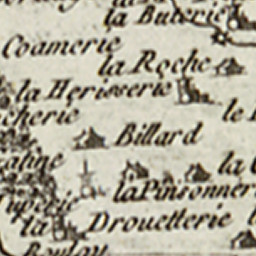 la Buterie
Coamerie
la Roche
la Herisserie
cherie
le
Billard
la
la Pinsonner
la Drouetterie
Boulay